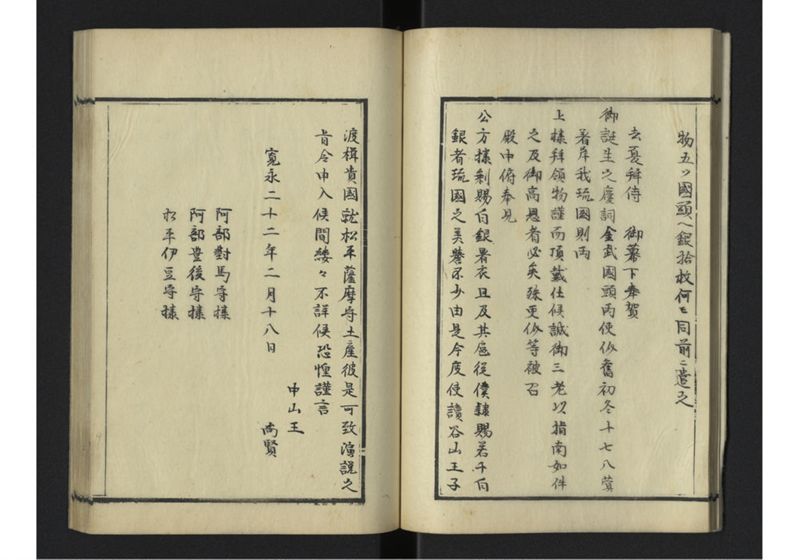 物五ツ國頭ヘ銀拾枚何モ同前ニ遣之
去夏拜侍　御幕下奉賀
御誕生之慶詞金武國頭両使僉舊初冬十七八蓂
著岸我琉国則両
上様拜領物謹而頂戴仕候誠御三老以指南如件
之及御高恩者必矣殊更僉等被召
殿中俯奉見
公方様剰賜白銀暑衣且及其扈従僕隷賜若干白
銀者琉國之美譽不少由是今度使讀谷山王子
渡楫貴國就松平薩摩守土産彼是可致演説之
旨令申入候間縷々不詳候恐惶謹言
寛永二十二年二月十八日
中山王
尚賢
阿部對馬守様
阿部豊後守様
松平伊豆守様